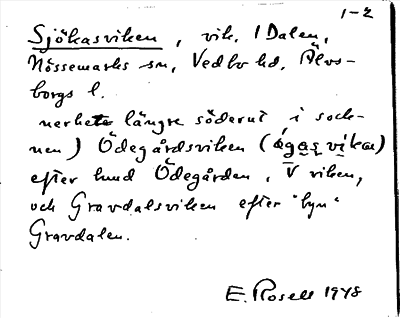 1-2
Sjökasviken, vik, I Dalen,
Nössemarks sn, Vedbo hd, Älvs-
borgs l.
längre söderut i sock-
nen) Ödegårdsviken (
efter hmd Ödegården, V viken,
och Gravdalsviken efter "byn"
Gravdalen.
E. Rosell 1948